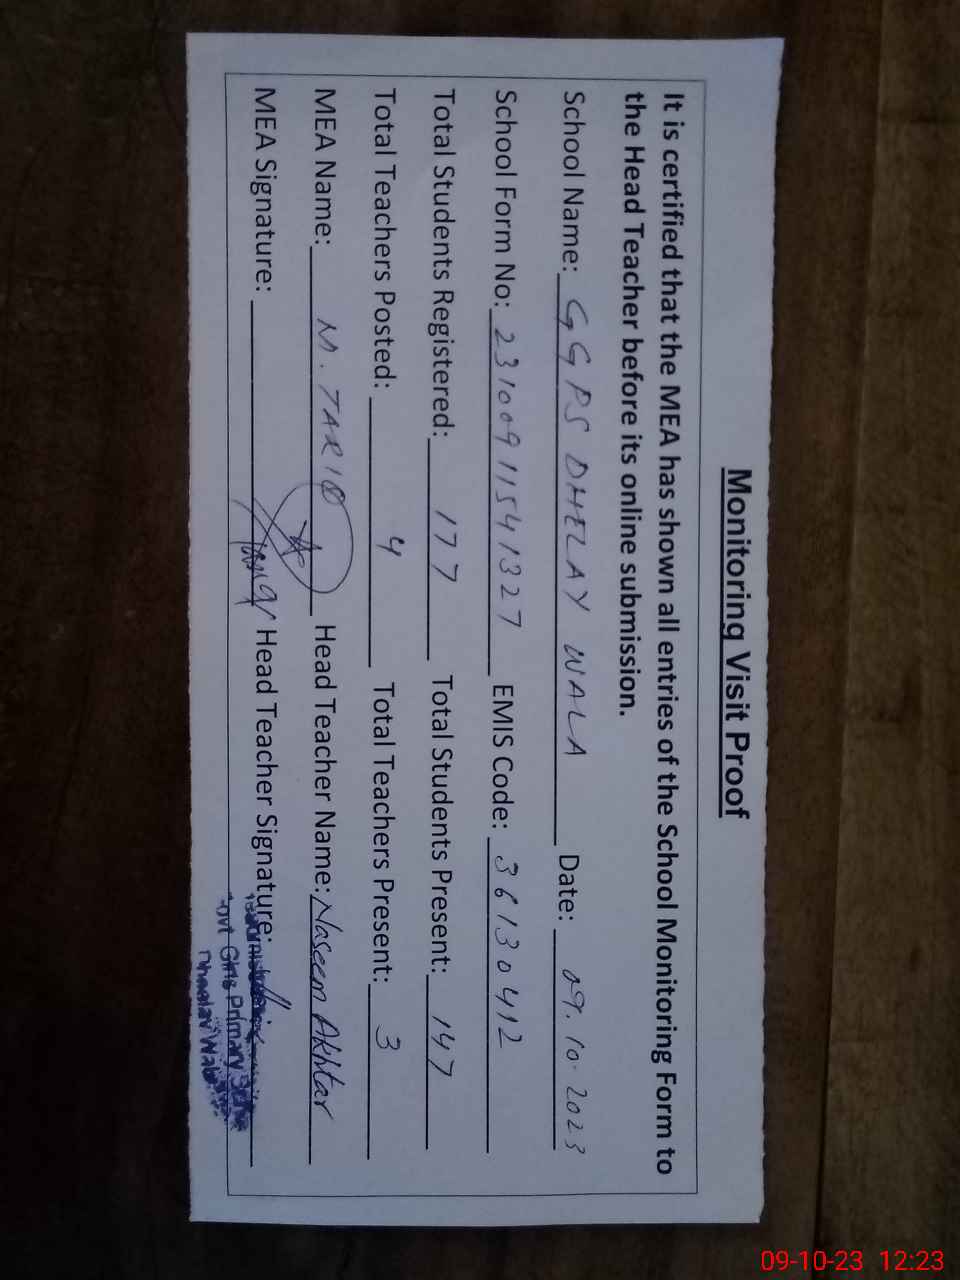 Monitoring Visit Proof
It is certified that the MEA has shown all entries of the School Monitoring Form to
the Head Teacher before its online submission.
School Name: GGPS DHELAY WALA Date: 09.10.2023
School Form No: 23100911541327 EMIS Code: 36130412
Total Students Registered: 177 Total Students Present: 147
Total Teachers Posted: 4 Total Teachers Present: 3
MEA Name: M. TARIQ Head Teacher Name: Naseem Akhtar
MEA Signature: Head Teacher Signature:
Govt Girls Primary
09-10-23 12:23